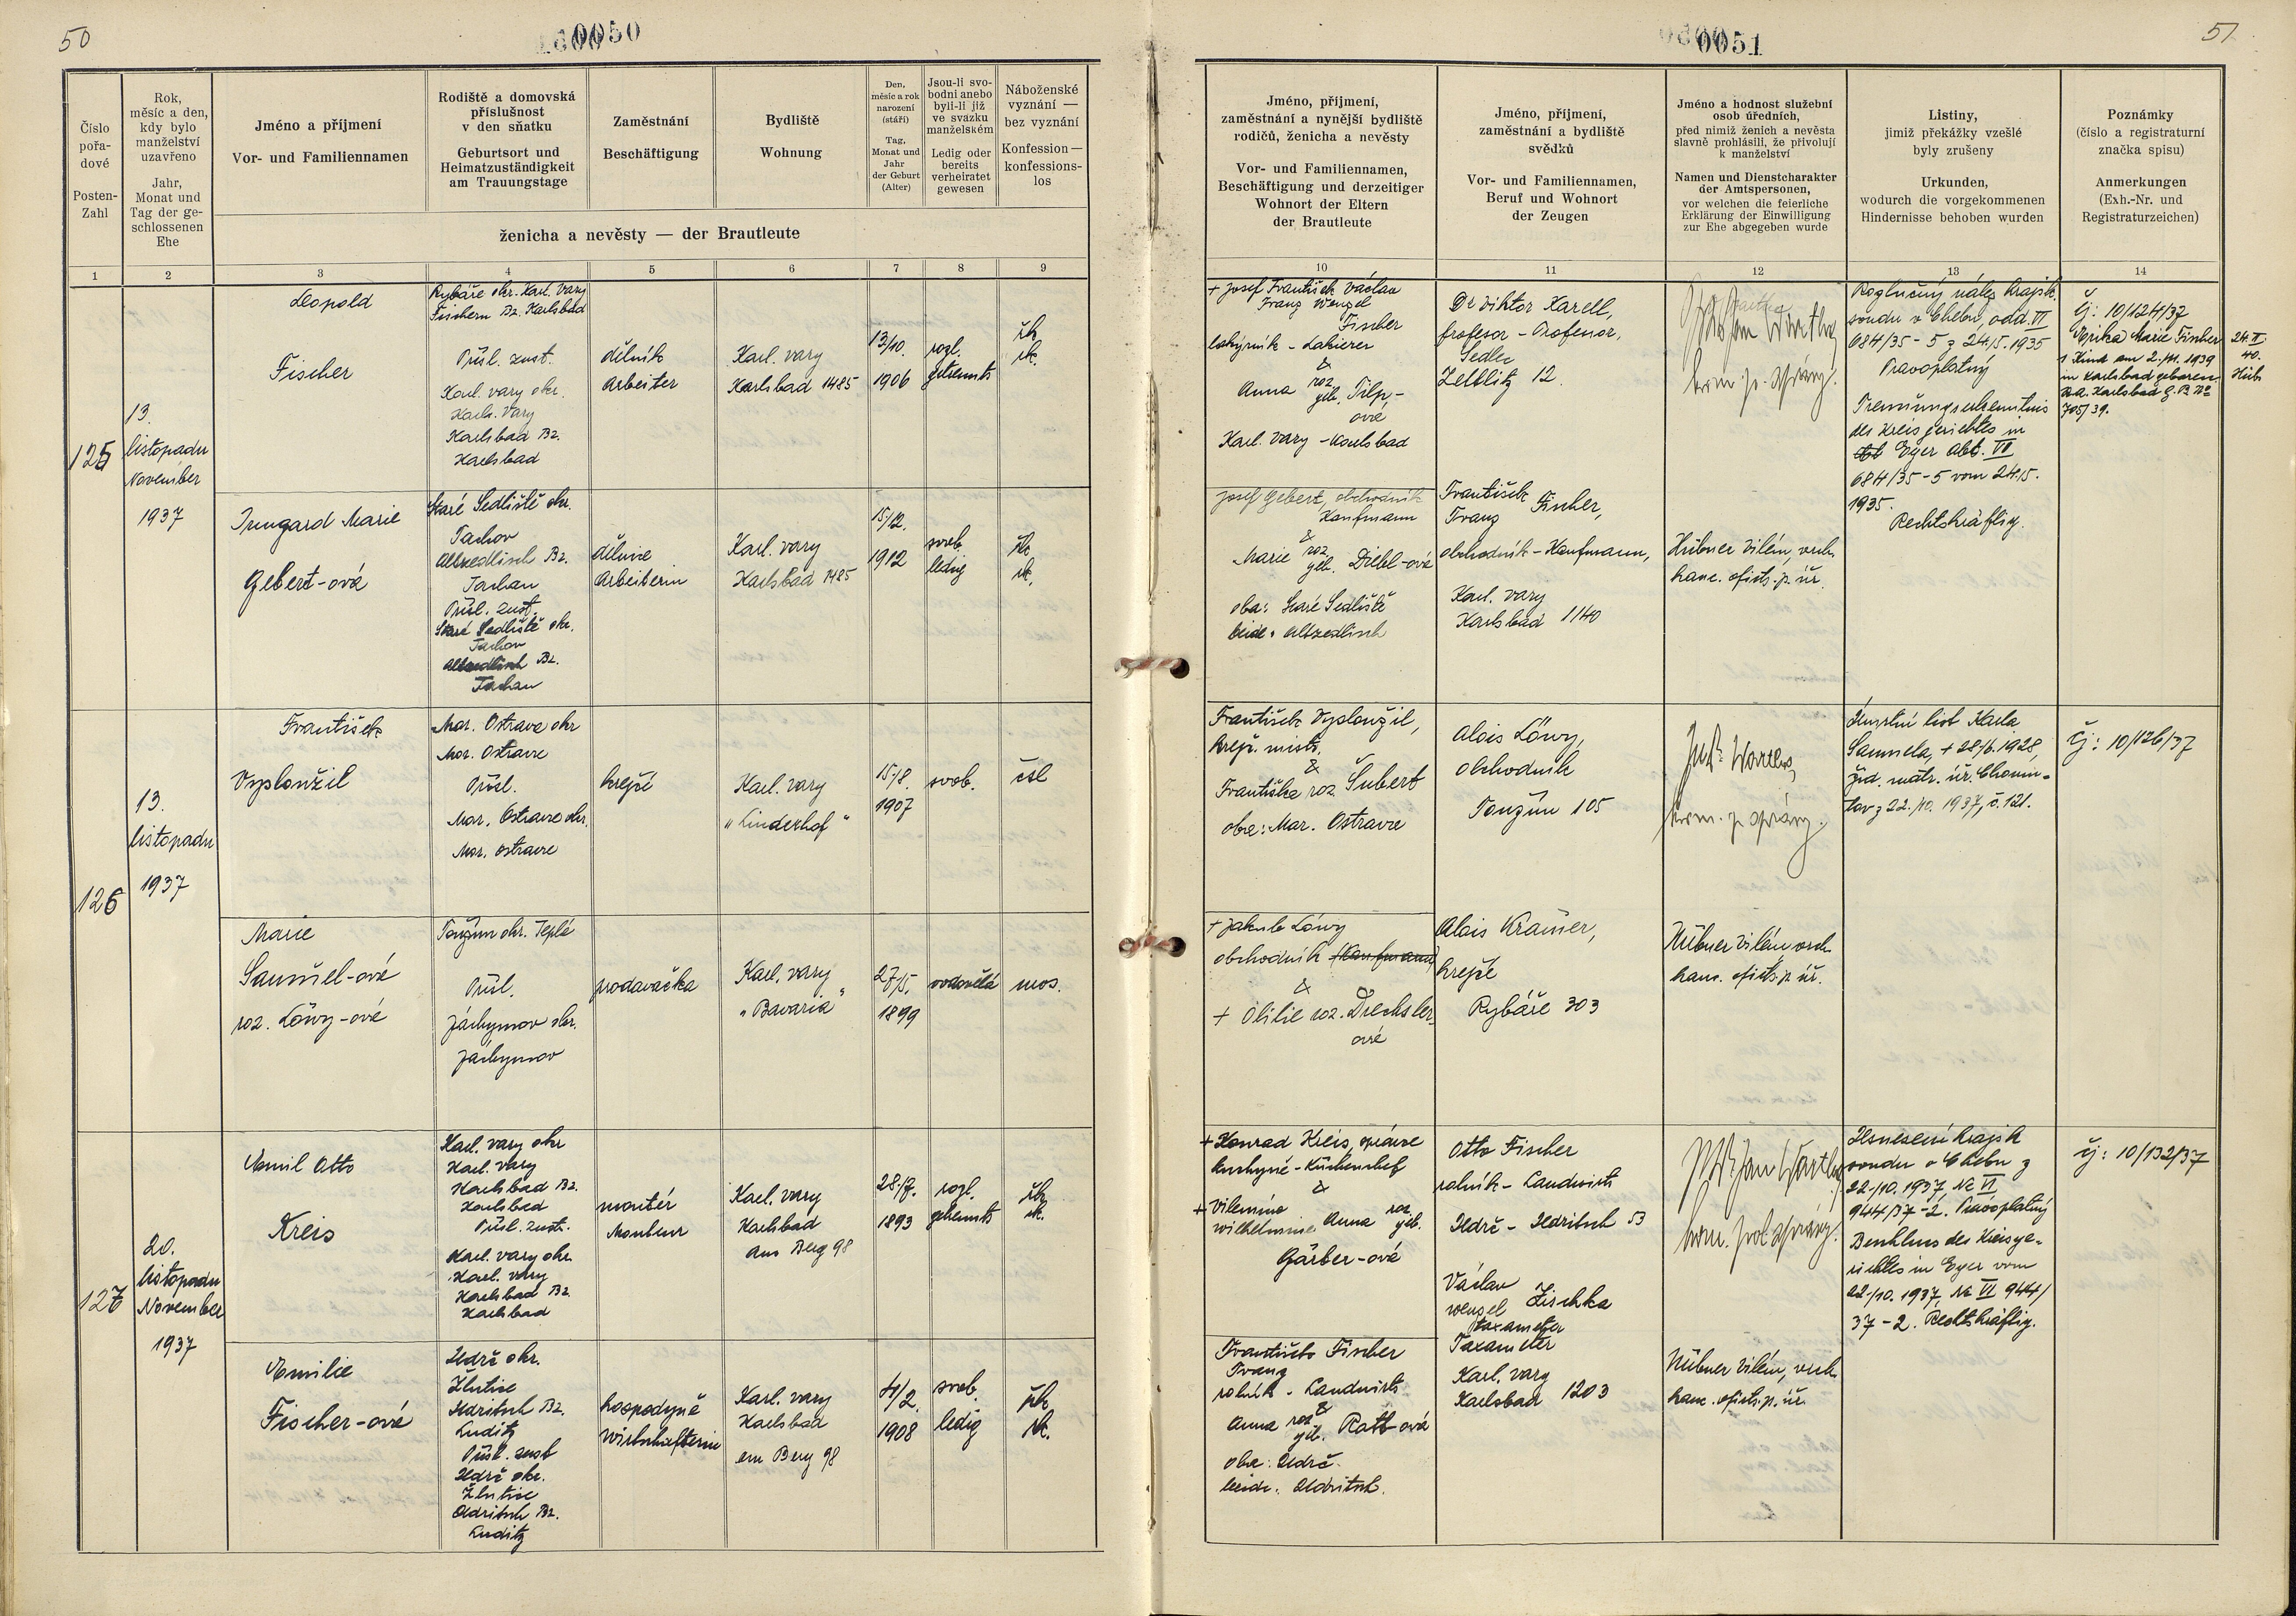 50
0050
Číslo
pořa-
dové
Posten-
Zahl
Rok,
měsíc a den,
kdy bylo
manželství
uzavřeno
Jahr,
Monat und
Tag der ge-
schlossenen
Ehe
Jméno a příjmení
Vor- und Familiennamen
Rodiště a domovská
příslušnost
v den sňatku
Geburtsort und
Heimatzuständigkeit
am Trauungstage
Zaměstnání
Beschäftigung
Bydliště
Wohnung
Den,
měsíc a rok
narození
(stáří)
Tag,
Monat und
Jahr
der Geburt
(Alter)
Jsou-li svo-
bodni anebo
byli-li již
ve svazku
manželském
Ledig oder
bereits
verheiratet
gewesen
Náboženské
vyznání —
bez vyznání
Konfession —
konfessions-
los
ženicha a nevěsty — der Brautleute
1
2
3
4
5
6
7
8
9
125
13.
listopadu
November
1937
Leopold
Fischer
Rybáře okr. Karl. Vary
Fischern Bz. Karlsbad
Přísl. zust.
Karl. vary okr.
Karl. Vary
Karlsbad Bz.
Karlsbad
dělník
Arbeiter
Karl. vary
Karlsbad 1485
13/10.
1906
rozl.
getrennt
řk
rk.
Irmgard Marie
Gebert-ová
Staré Sedliště okr.
Tachov
Altzedlisch Bz.
Tachau
Přísl. zust.
Staré Sedliště okr.
Tachov
Altzedlisch Bz.
Tachau
dělnice
Arbeiterin
Karl. vary
Karlsbad 1485
15/12.
1912
svob.
ledig
řk
rk.
126
13.
listopadu
1937
František
Vyploužil
Mor. Ostrava okr
Mor. Ostrava
Přísl.
Mor. Ostrava okr.
Mor. Ostrava
krejčí
Karl. vary
"Linderhof"
15/8.
1907
svob.
čsl
Marie
Samuel-ová
roz. Löwy-ová
Toužim okr. Teplá
Přísl.
Jáchymov okr.
Jáchymov
prodavačka
Karl. vary
"Bavaria"
27/5.
1899
vdovělá
mos.
127
20.
listopadu
November
1937
Emil Otto
Kreis
Karl. vary okr
Karl. vary
Karlsbad Bz.
Karlsbad
Přísl. zust.
Karl. vary okr.
Karl. vary
Karlsbad Bz.
Karlsbad
montér
Monteur
Karl. vary
Karlsbad
am Berg 98
28/7.
1893
rozl.
getrennt
řk
rk.
Emilie
Fischer-ová
Údrč okr.
Žlutice
Udritsch Bz.
Luditz
Přísl. zust
Údrč okr.
Žlutice
Udritsch Bz.
Luditz
hospodyně
Wirtschafterin
Karl. vary
Karlsbad
am Berg 98
4/2.
1908
svob.
ledig
řk
rk.
0051
51
Jméno, příjmení,
zaměstnání a nynější bydliště
rodičů, ženicha a nevěsty
Vor- und Familiennamen,
Beschäftigung und derzeitiger
Wohnort der Eltern
der Brautleute
Jméno, příjmení,
zaměstnání a bydliště
svědků
Vor- und Familiennamen,
Beruf und Wohnort
der Zeugen
Jméno a hodnost služební
osob úředních,
před nimiž ženich a nevěsta
slavně prohlásili, že přivolují
k manželství
Namen und Dienstcharakter
der Amtspersonen,
vor welchen die feierliche
Erklärung der Einwilligung
zur Ehe abgegeben wurde
Listiny,
jimiž překážky vzešlé
byly zrušeny
Urkunden,
wodurch die vorgekommenen
Hindernisse behoben wurden
Poznámky
(číslo a registraturní
značka spisu)
Anmerkungen
(Exh.-Nr. und
Registraturzeichen)
10
11
12
13
14
+ Josef František Václav
Franz Wenzel
Fischer
lakýrník - Lakierer
&
Anna roz. geb. Pilp-
ová
Karl. Vary - Karlsbad
Dr Viktor Karell,
profesor - Professor,
Sedlec
Zettlitz 12.
Rozlučný nález krajsk.
soudu v Chebu, odd. VI
684/35-5 z 24/5. 1935
Pravoplatný
Trennungserkenntnis
des Kreisgerichtes in
Eger Abt. VI
684/35-5 vom 24/5.
1935.
Rechtskräftig.
Čj: 10/124/37
Marie Fischer
1 Kind am 2./11. 1939
in Karlsbad geboren.
705/39.
24.II.
40.
Hüb.
Josef Gebert, obchodník
Kaufmann
&
Marie roz. geb. Diebl-ová
oba: Staré Sedliště
beide: Altzedlisch
František
Franz Fischer,
obchodník - Kaufmann,
Karl. vary
Karlsbad 1140
Hübner Vilém, vrch.
kanc. ofic. p. úř.
František Vyploužil,
krejč. mistr,
&
Františka roz. Šubert
oba: Mor. Ostrava
Alois Löwy,
obchodník
Toužim 105
Úmrtní list Karla
Samuela, + 28/6. 1928,
žid. matr. úř. Chomu-
tov z 22./10. 1937, č. 121.
čj: 10/126/37
+ Jakub Löwy
obchodník (Kaufmann)
&
+ Otilie roz. Drechsler-
ová
Alois Kramer,
krejčí
Rybáře 303
Hübner Vilém, vrch.
kanc. ofic. p. úř.
+ Konrad Kreis, správce
kuchyně - Küchenchef
&
+ Vilemína
Wilhelmine Anna roz. geb.
Gärber-ová
Otto Fischer
rolník - Landwirt
Údrč - Udritsch 53
Václav
Wenzel Zischka
taxametr
Taxameter
Karl. vary
Karlsbad 1203
Usnesení krajsk
soudu v Chebu z
22./10. 1937, Nc VI
944/37-2. Pravoplatný
Beschluss des Kreisge-
richtes in Eger vom
22./10. 1937, Nc VI 944/
37-2. Rechtskräftig.
čj: 10/132/37
František Fischer
Franz
rolník - Landwirt
&
Anna roz. geb. Rath-ová
oba: Údrč.
beide: Udritsch.
Hübner Vilém, vrch.
kanc. ofic. p. úř.